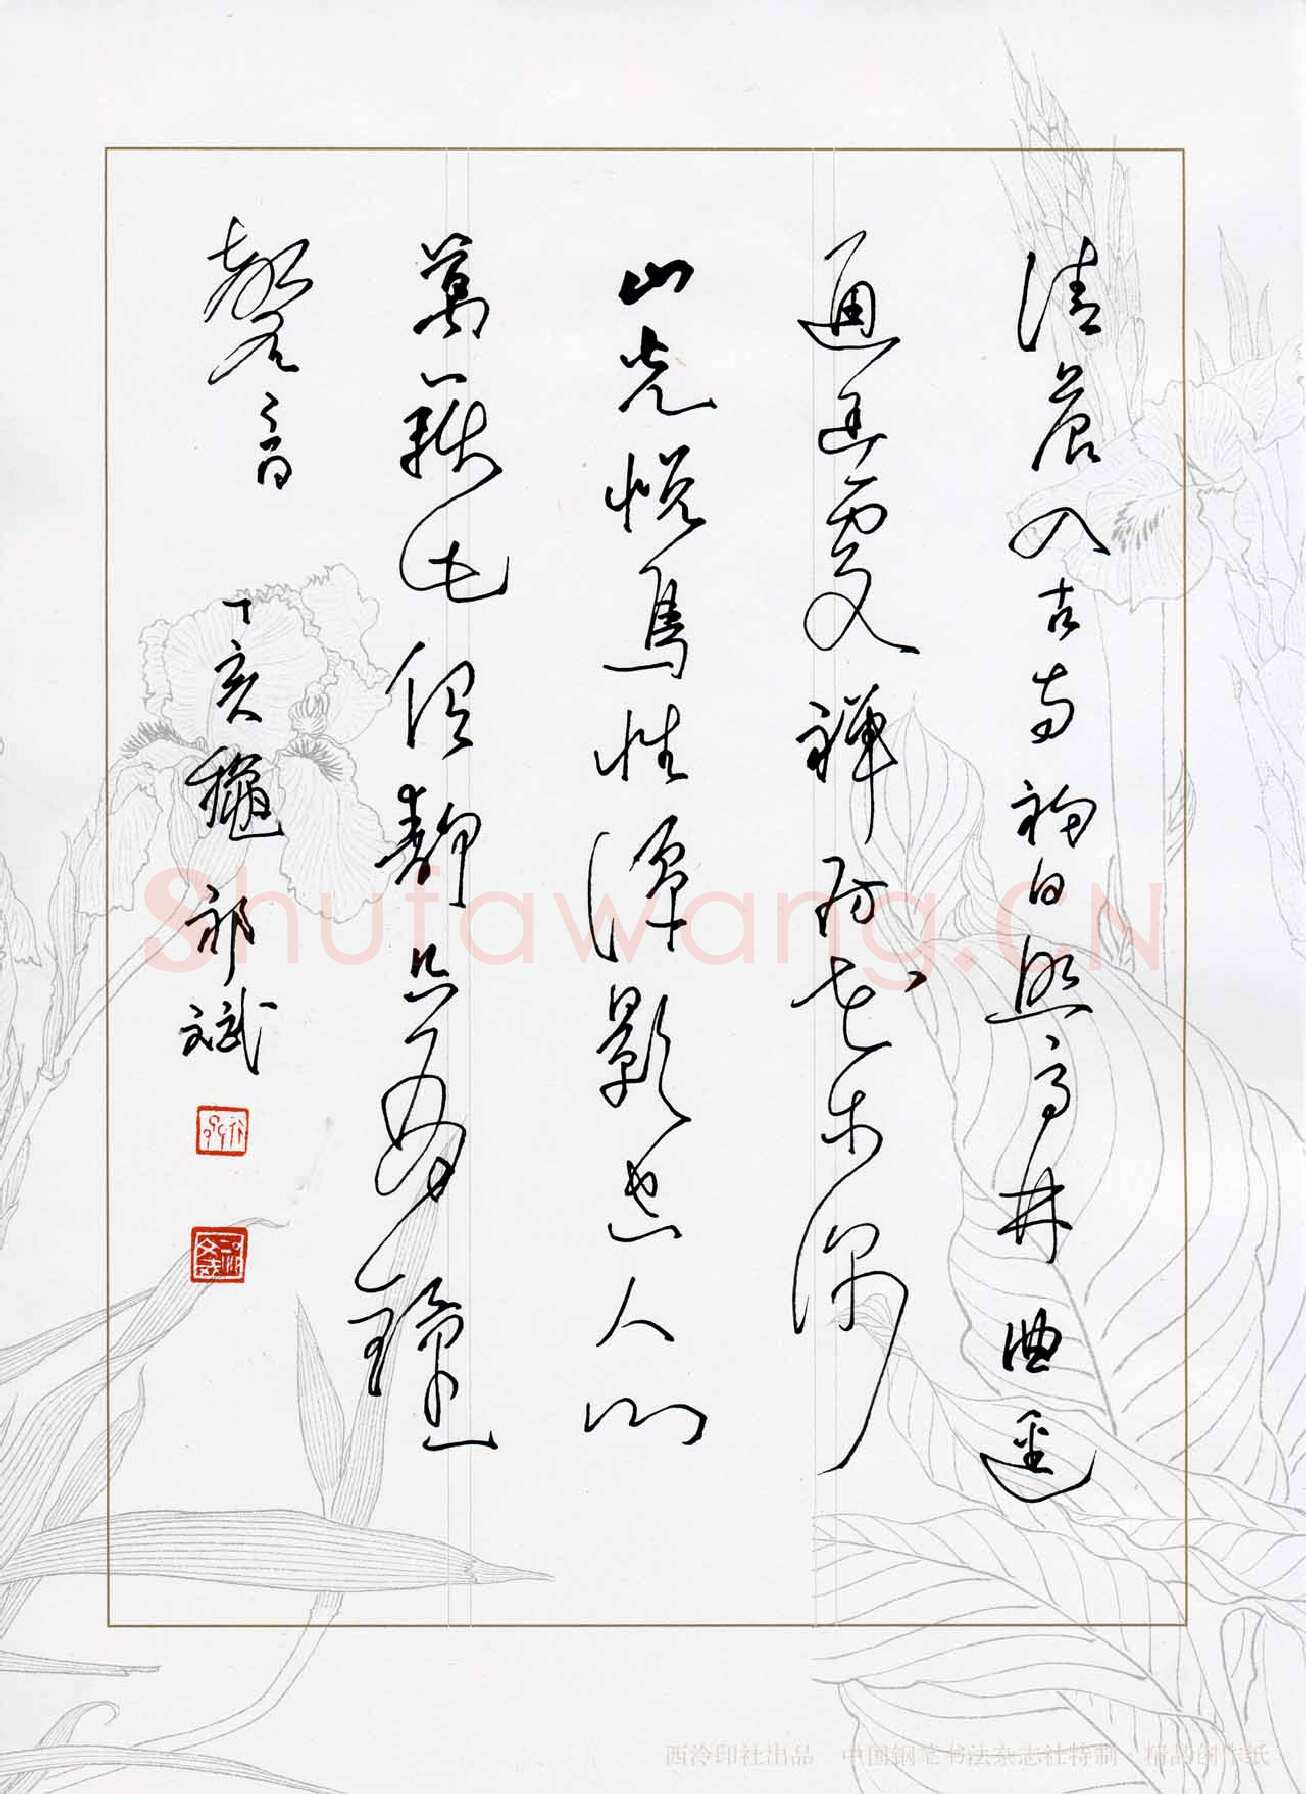 清晨入古寺初日照高林曲逕
通幽處禪房花木深
山光悦鳥性潭影空人心
萬籟此俱静只餘鐘
磬音
丁亥龝祁斌
Shufawang.CN
西泠印社出品 中国钢笔书法杂志社特制·精品创作纸